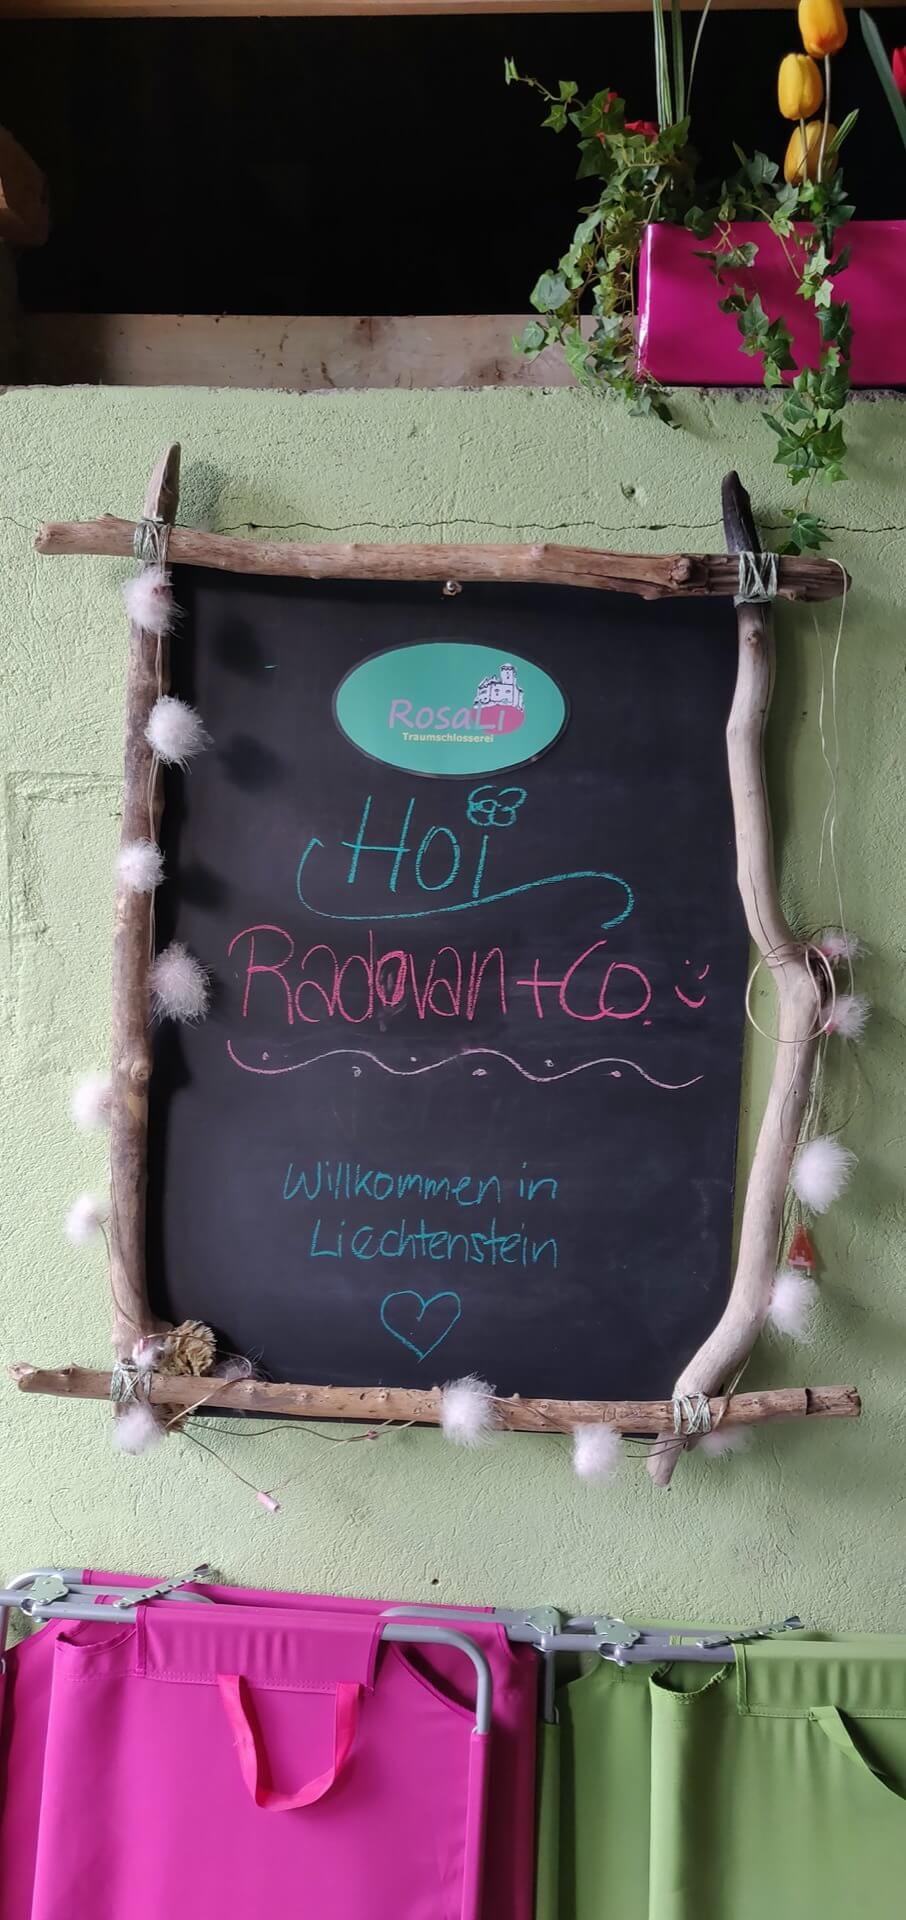 RosaLi
Traumschlosserei
Hoi
Radovan + Co.
Willkommen in
Liechtenstein